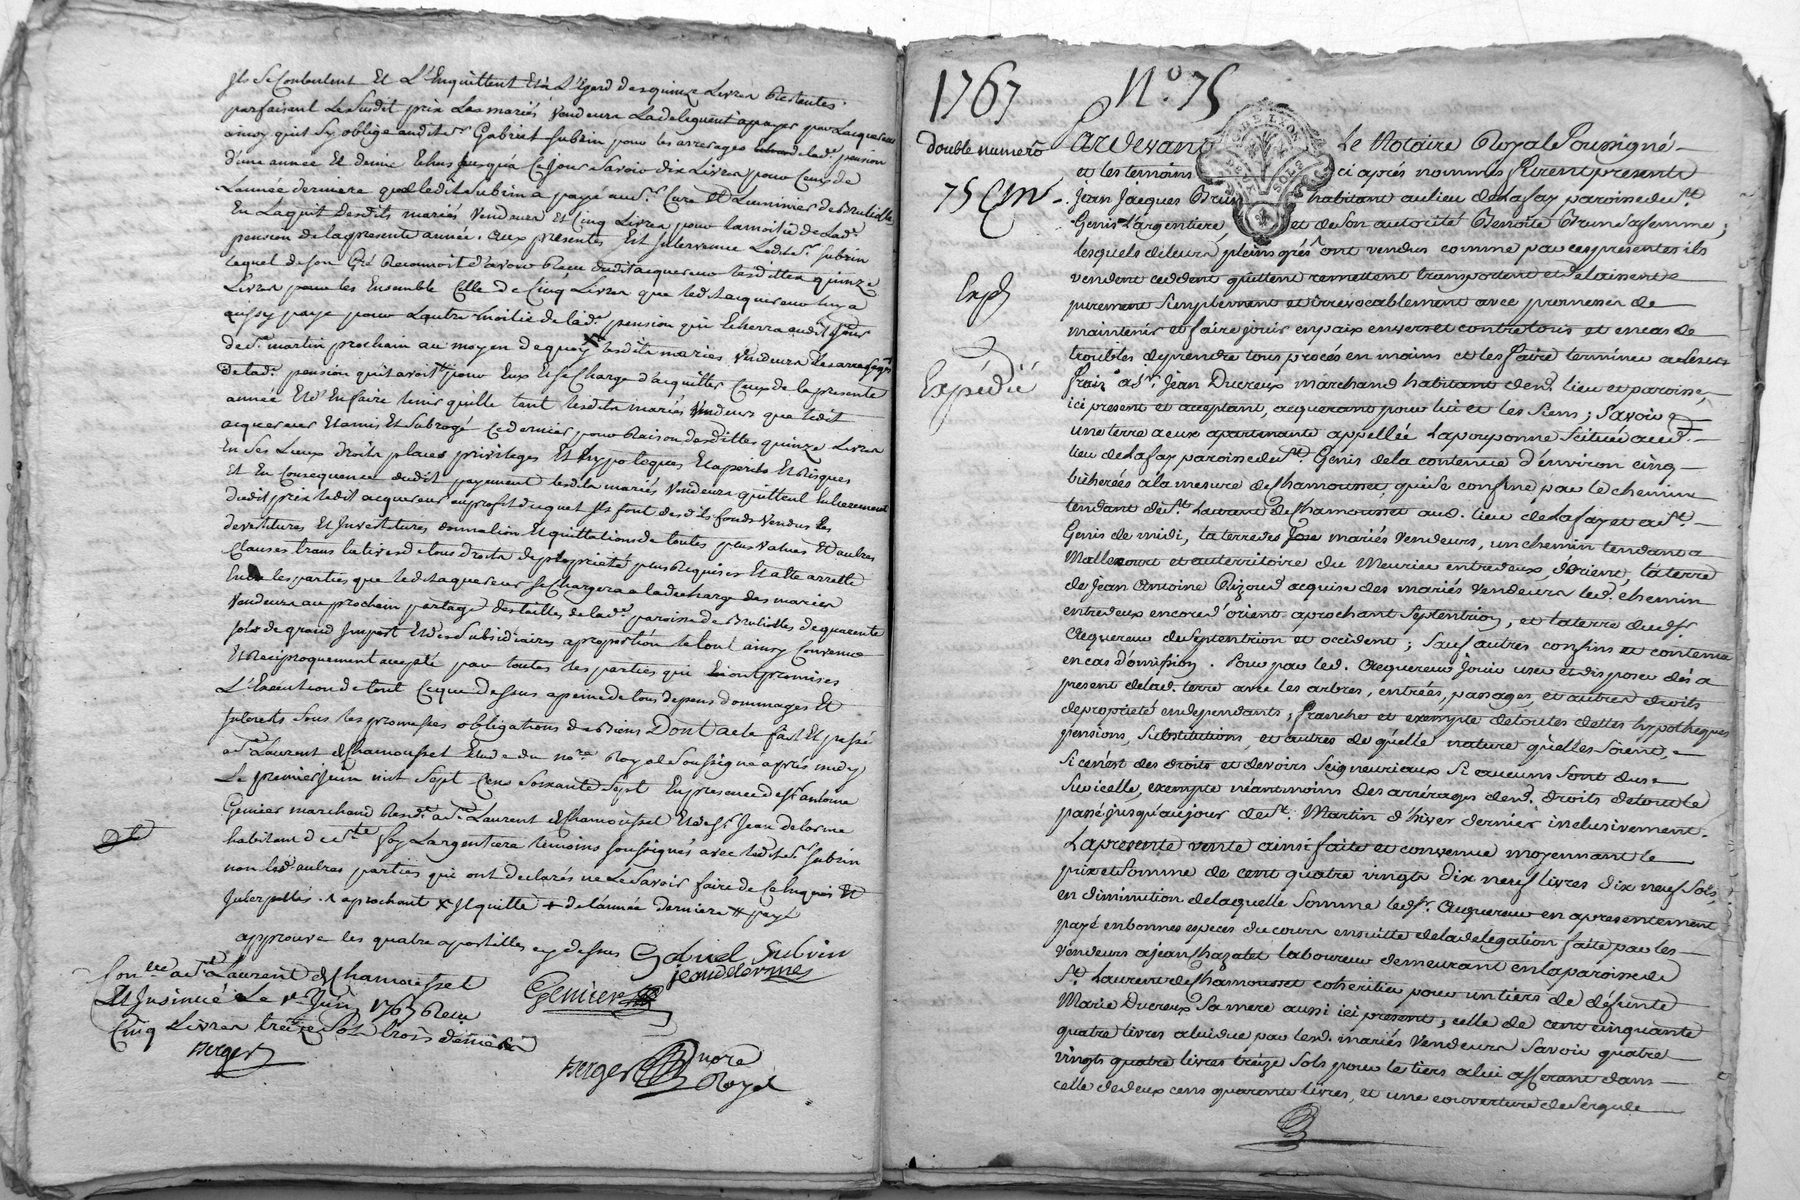 ils se Contentent Et L'Enquittent Et à L'Egard des quinze Livres Restantes
parfaisant Le Susdit prix Les mariés Vendeurs La deleguent apayer par Lacquereur
ainsy quil S'y oblige audit sr. Gabriel Subrin pour les arrerages de lad.e pension
d'une année Et demie Echus jusqu'a Ce jour Savoir dix Livres pour Ceux de
Lannée derniere que ledit Subrin a payé aux srs. Curé Et Luminier de Brulliolles
En Laquit desdits mariés Vendeurs et Cinq Livres pour la moitié de Lad.e
pension de la presente année. aux presentes Est Intervenu Ledit sr. Subrin
lequel de son Gré Reconnoit d'avoir Reçu dudit acquereur lesdittes quinze
Livres pour les Ensemble Celle de Cinq Livres que ledit acquereur luy a
aussy payé pour Lautre moitié de lad.e pension qui Echerra au jour
de st. martin prochain au moyen de quoy lesdits mariés Vendeurs des arrerages
de lad.e pension quil avoit pour Eux Et se Charge d'acquitter Ceux de la presente
année Et d'En faire tenir quitte tant lesdits mariés Vendeurs que ledit
acquereur Et a mis Et Subrogé Ce dernier pour Raison desdittes quinze Livres
En Ses Lieux droits places privileges Et hypoteques Et a perils Et Risques
Et En Consequence dudit payement lesdits mariés Vendeurs quittent Entierement
dudit prix ledit acquereur au profit duquel ils font desdits fonds Vendus les
devestitures Et Investitures donnation Et quittations de toutes plus Values Et autres
Clauses translatives de tous droits de proprieté plus Requises Et a Eté arretté
Entre les parties que ledit acquereur se Chargera a la decharge des mariés
Vendeurs au prochain partage des tailles de lad.e paroisse de Brulliolles de quarente
sols de grand Impost Et des Subsidiaires a proportion le tout ainsy Convenu
Et Reciproquement accepté par toutes les parties qui En ont promises
L'Execution de tout Ce que dessus a peine de tous depens dommages Et
Interets sous les promesses obligations de Biens Dont acte fait Et passé
a st. Laurent de Chamousset Etude du no.re Royal Soussigné après midy
Le premier juin mil Sept Cens Soixante Sept En presence de sr. antoine
Genier marchand Resid.t a st. Laurent de Chamousset Et de sr. Jean delorme
habitant de ste. foy Largentiere temoins Soussignés avec ledit sr. Subrin
non lesd. autres parties qui ont declarés ne Le Savoir faire de Ce Enquis Et
Interpellés. aprochant x Il quitte + de l'année derniere # payé
approuvé les quatre apostilles cy dessus Gabriel Subrin
jean delorme
Genier
Con.llé a st. Laurent de Chamousset
Et Insinué Le 1er. Juin 1767 Reçu
Cinq Livres treize Sols trois deniers
Berger
Berger no.re
Royal
1767 N.o 75
double numero
75 Cm
Exp.
Expédié
DE LYON
SOLS
Pardevant Le Notaire Royal Soussigné
et les temoins ci aprés nommés furent presents
Jean Jacques Brun habitant au lieu de Lafay paroisse de St.
Genis Largentiere, et de son autorité Benoite Brun sa femme;
lesquels de leurs pleins grés ont vendus comme par ces presentes ils
vendent ceddent quittent remettent transportent et delaissent
purement simplement et irrevocablement avec promesses de
maintenir et faire jouir en paix envers et contre tous et en cas de
troubles de prendre tous procés en mains et les faire terminer a leurs
frais a Sr. Jean Ducreux marchand habitant dud. lieu et paroisse,
ici present et acceptant, acquerant pour lui et les siens; Savoir
une terre a eux apartenante appellée Lapouponne scituée aud.
lieu de Lafay paroisse de St. Genis de la contenue d'environ cinq
bicherées à la mesure de Chamousset, qui se confine par le chemin
tendant de St. Laurent de Chamousset aud. lieu de Lafay et a St.
Genis de midi, la terre des mariés vendeurs, un chemin tendant a
Mallecourt et au territoire du Meurieu entredeux, d'orient, la terre
de Jean Antoine Rizoud acquise des mariés vendeurs led. chemin
entredeux encore d'orient aprochant Septentrion, et la terre dud. Sr.
Acquereur de Septentrion et occident; Sauf autres confins et contenue
en cas d'omission. Pour par led. Acquereur jouir user et disposer dés a
present de lad. terre avec les arbres, entrées, passages, et autres droits
de proprieté en dependants; franche et exempte de toutes dettes hypotheques
pensions, Substitutions, et autres de qu'elle nature qu'elles soient,
si ce n'est des droits et devoirs Seigneuriaux si aucuns sont dus
sur icelle, exempte néantmoins des arrérages desd. droits de tout le
passé jusqu'au jour de St. Martin d'hiver dernier inclusivement.
La presente vente ainsi faite et convenue moyennant le
prix et Somme de cent quatre vingts dix neuf livres dix neuf Sols,
en diminution de laquelle Somme led. Sr. Acquereur en a presentement
payé en bonnes especes du cours ensuitte de la delegation faite par les
vendeurs a Jean Chazalet laboureur demeurant en la paroisse de
St. Laurent de Chamousset coheritier pour un tiers de défunte
Marie Ducreux Sa mere aussi ici present, celle de cent cinquante
quatre livres a lui due par lesd. mariés vendeurs Savoir quatre
vingts quatre livres treize Sols pour le tiers a lui afferant dans
celle de deux cens quarante livres, et une couverture de Sergude